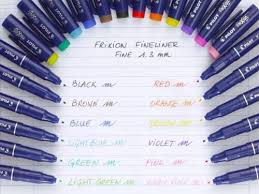 FRIXION FINELINER
FINE 1.3 mm
BLACK RED
BROWN ORANGE
BLUE YELLOW
LIGHT BLUE VIOLET
GREEN PINK
LIGHT GREEN PINK
PILOT